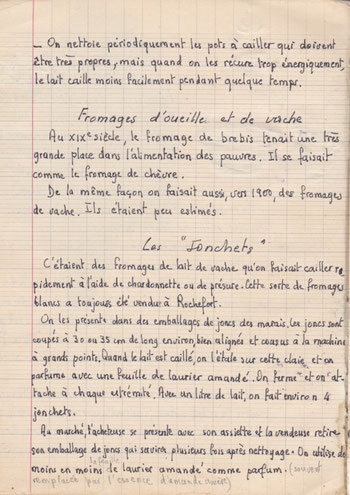 _ On nettoie périodiquement les pots à cailler qui doivent
être très propres, mais quand on les récure trop énergiquement,
le lait caille moins facilement pendant quelque temps.
Fromages d'oueille et de vache
Au XIXe siècle, le fromage de brebis tenait une très
grande place dans l'alimentation des pauvres. Il se faisait
comme le fromage de chèvre.
De la même façon on faisait aussi, vers 1900, des fromages
de vache. Ils étaient peu estimés.
Les "Jonchets"
C'étaient des fromages de lait de vache qu'on faisait cailler ra
pidement à l'aide de chardonnette ou de présure. Cette sorte de fromages
blancs a toujours été vendue à Rochefort.
On les présente dans des emballages de joncs des marais. Les joncs sont
coupés à 30 ou 35 cm de long environ, bien alignés et cousus à la machine
à grands points. Quand le lait est caillé, on l'étale sur cette claie et on
parfume avec une feuille de laurier amandé. On ferme et on "at-
tache à chaque extrémité. Avec un litre de lait, on fait environ 4
jonchets.
Au marché, l'acheteuse se présente avec son assiette et la vendeuse retire
son emballage de joncs qui servira plusieurs fois après nettoyage. On utilise de
moins en moins la feuille le laurier amandé comme parfum. (souvent
remplacée par l'essence d'amande amère)